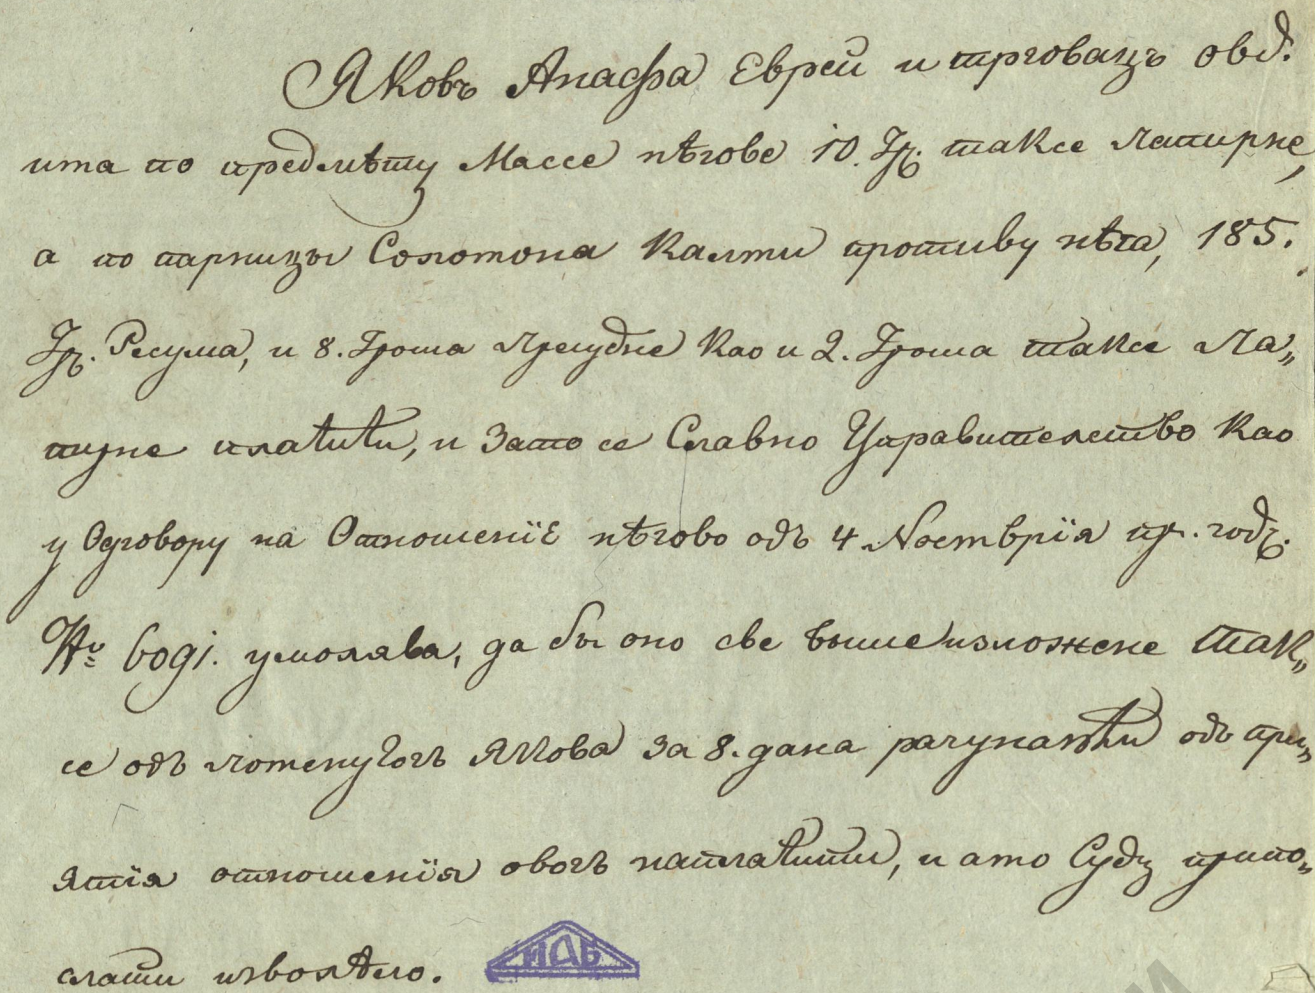 Яковъ Апасфа Еврей и трговацъ овд.
има по предмѣту Массе нѣгове 10. Гр. таксе папирне,
а по парницы Соломона Калми противу нѣга, 185.
Гр. Ресума, и 8. Гроша пресудне као и 2. Гроша таксе па„
пирне платити, и зато се Славно Управителство као
у Одговору на Отношенїе нѣгово одъ 4 Ноемврїя пр. год.
№ 6091. умолява, да бы оно све вышеизложене так„
се одъ поменутогъ Якова за 8. дана рачунаюћи одъ при„
ятїя отношенїя овогъ наплатити, и амо Суду припо„
слати изволѣло.
ИАБ